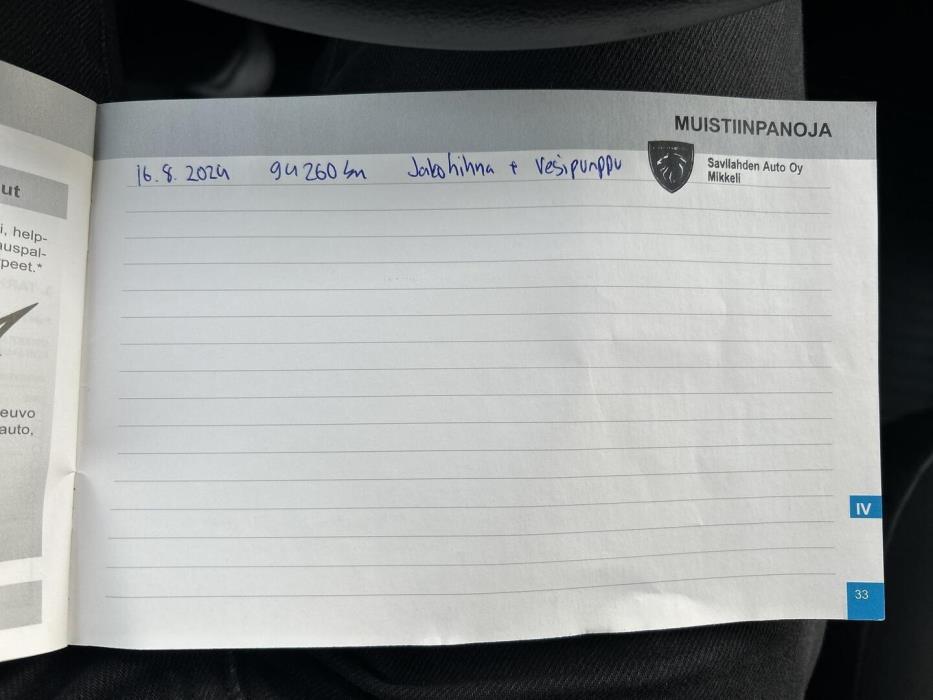 ut
i, help-
auspal-
peet.*
euvo
auto,
MUISTIINPANOJA
16.8.2024 94260 km Jakohihna + Vesipumppu
Savilahden Auto Oy
Mikkeli
IV
33